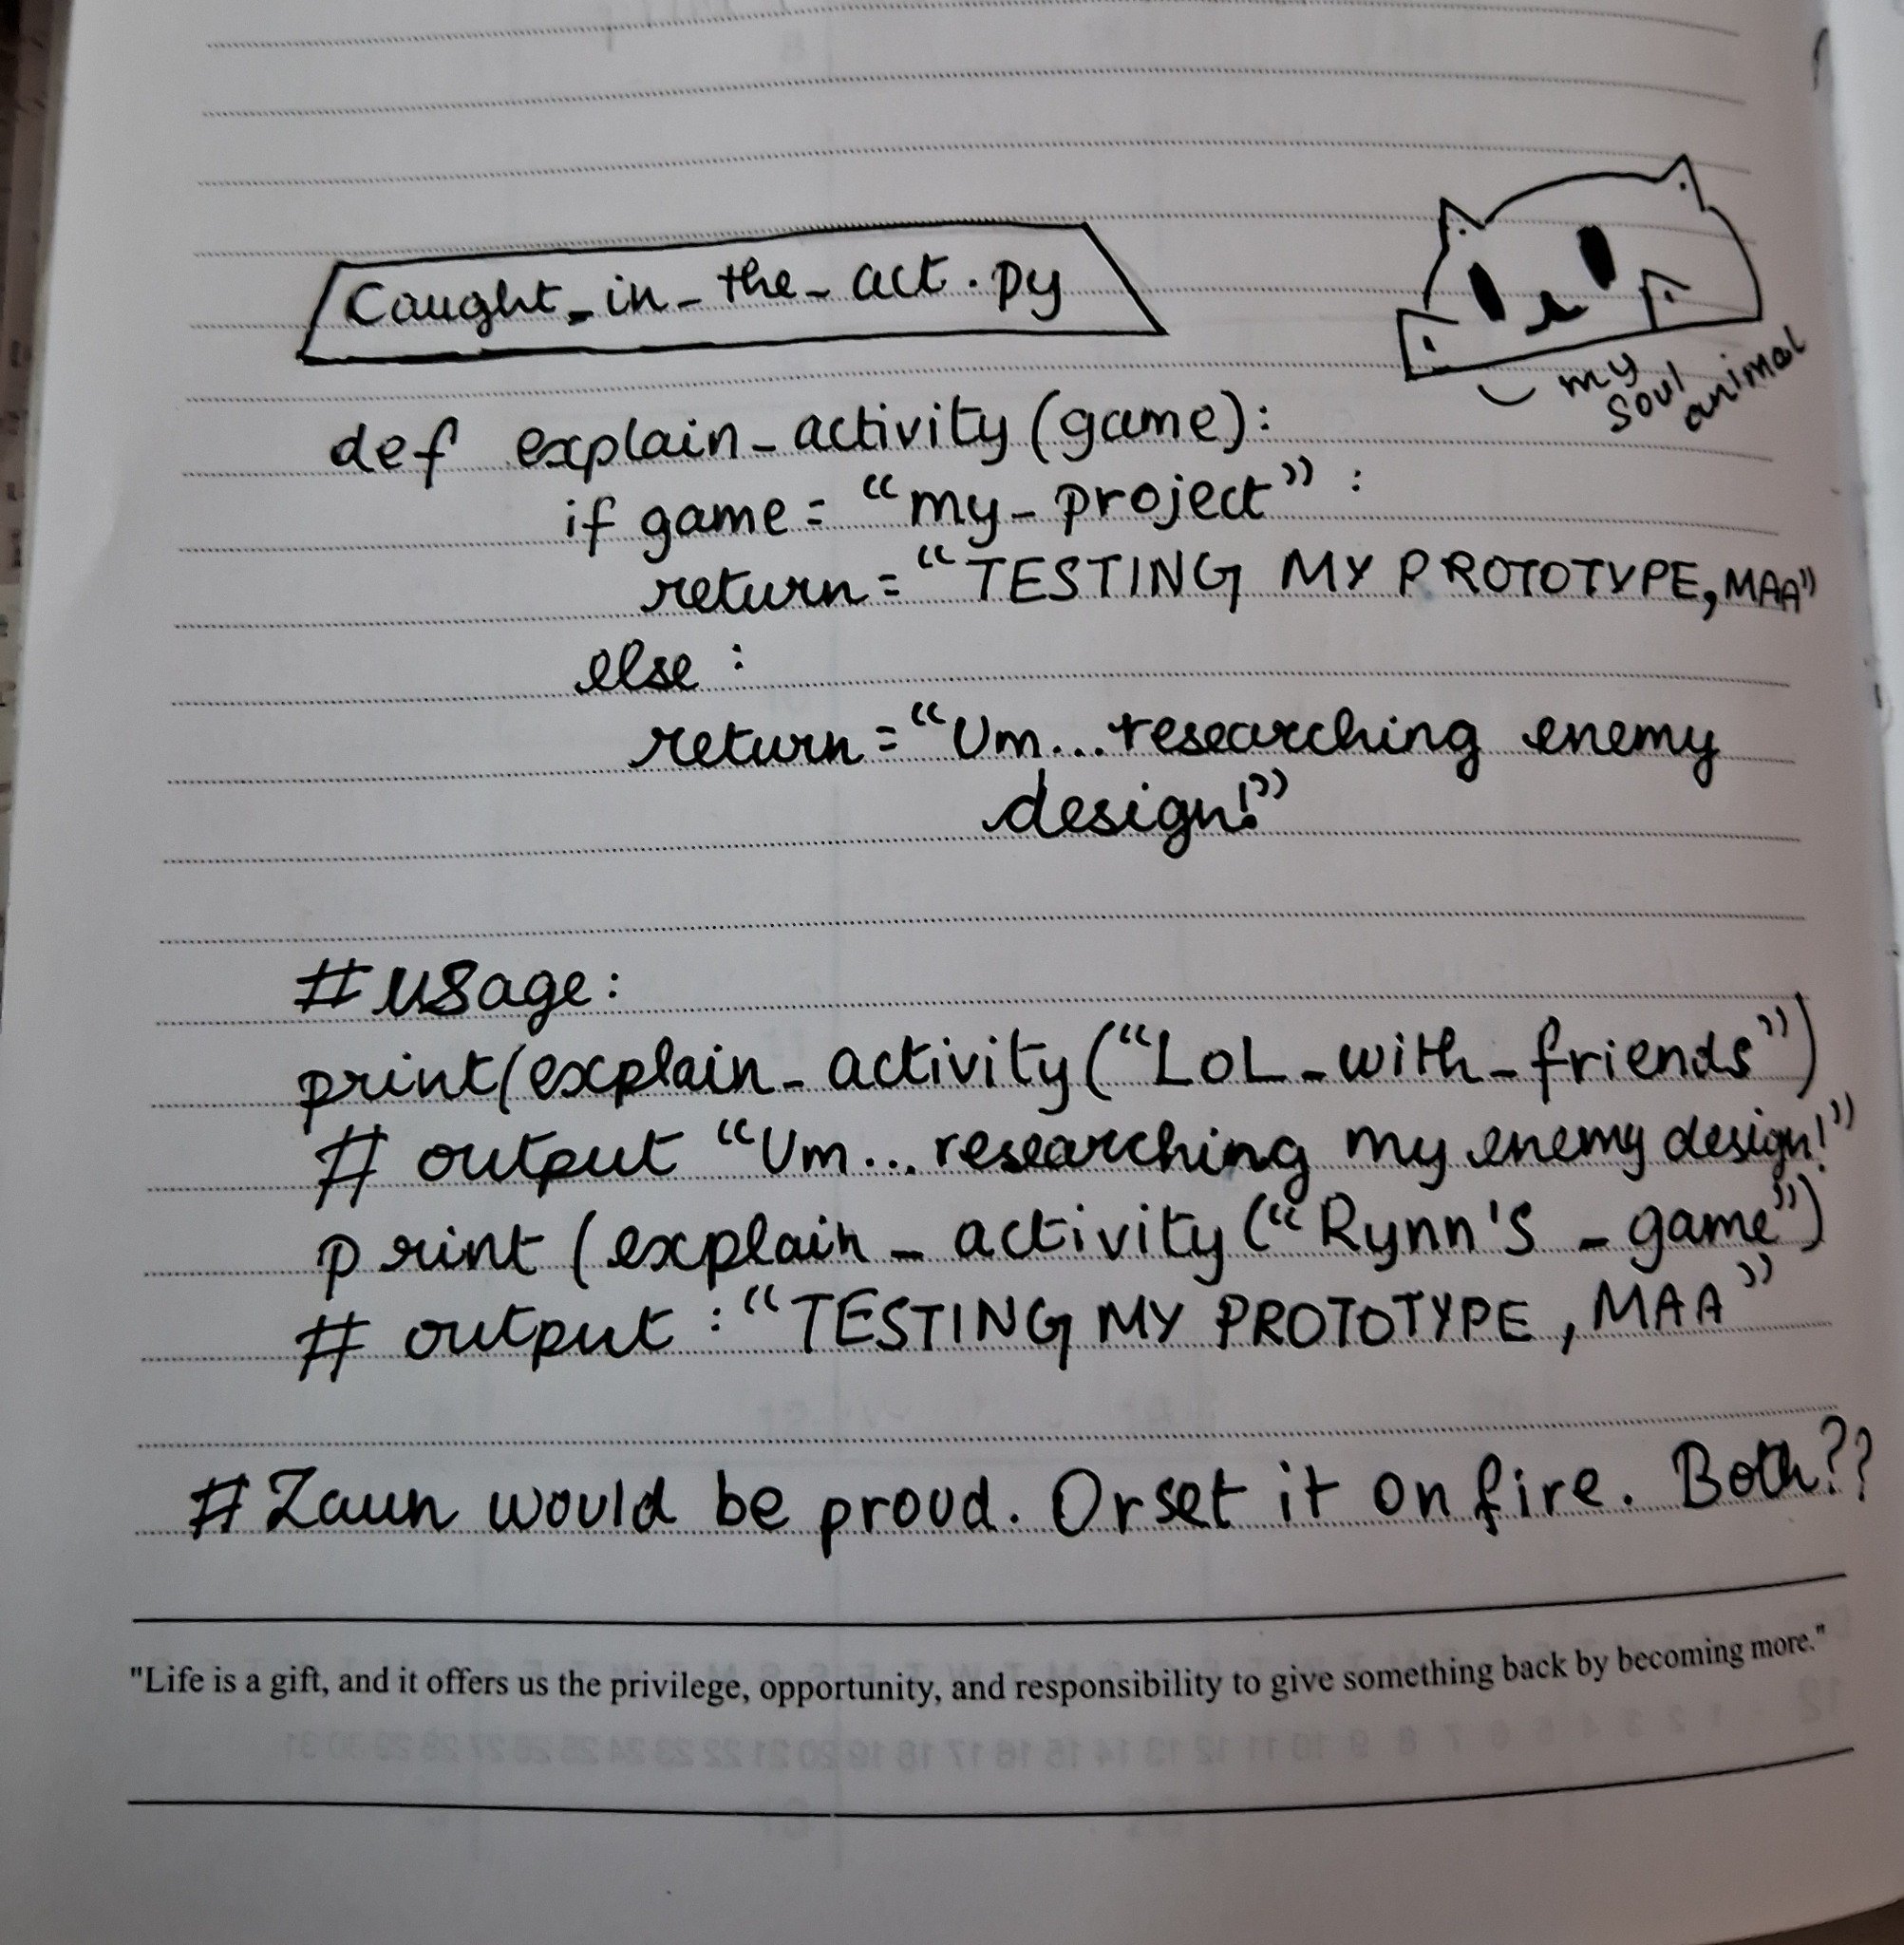 Caught_in_the_act.py
my
soul
animal
def explain_activity(game):
if game = "my_project" :
return = "TESTING MY PROTOTYPE, MAA"
else :
return = "Um...researching enemy
design!"
#usage:
print(explain_activity("LoL_with_friends")
# output "Um...researching my enemy design!"
print (explain_activity("Rynn's_game")
# output : "TESTING MY PROTOTYPE, MAA"
#Zaun would be proud. Or set it on fire. Both??
"Life is a gift, and it offers us the privilege, opportunity, and responsibility to give something back by becoming more."